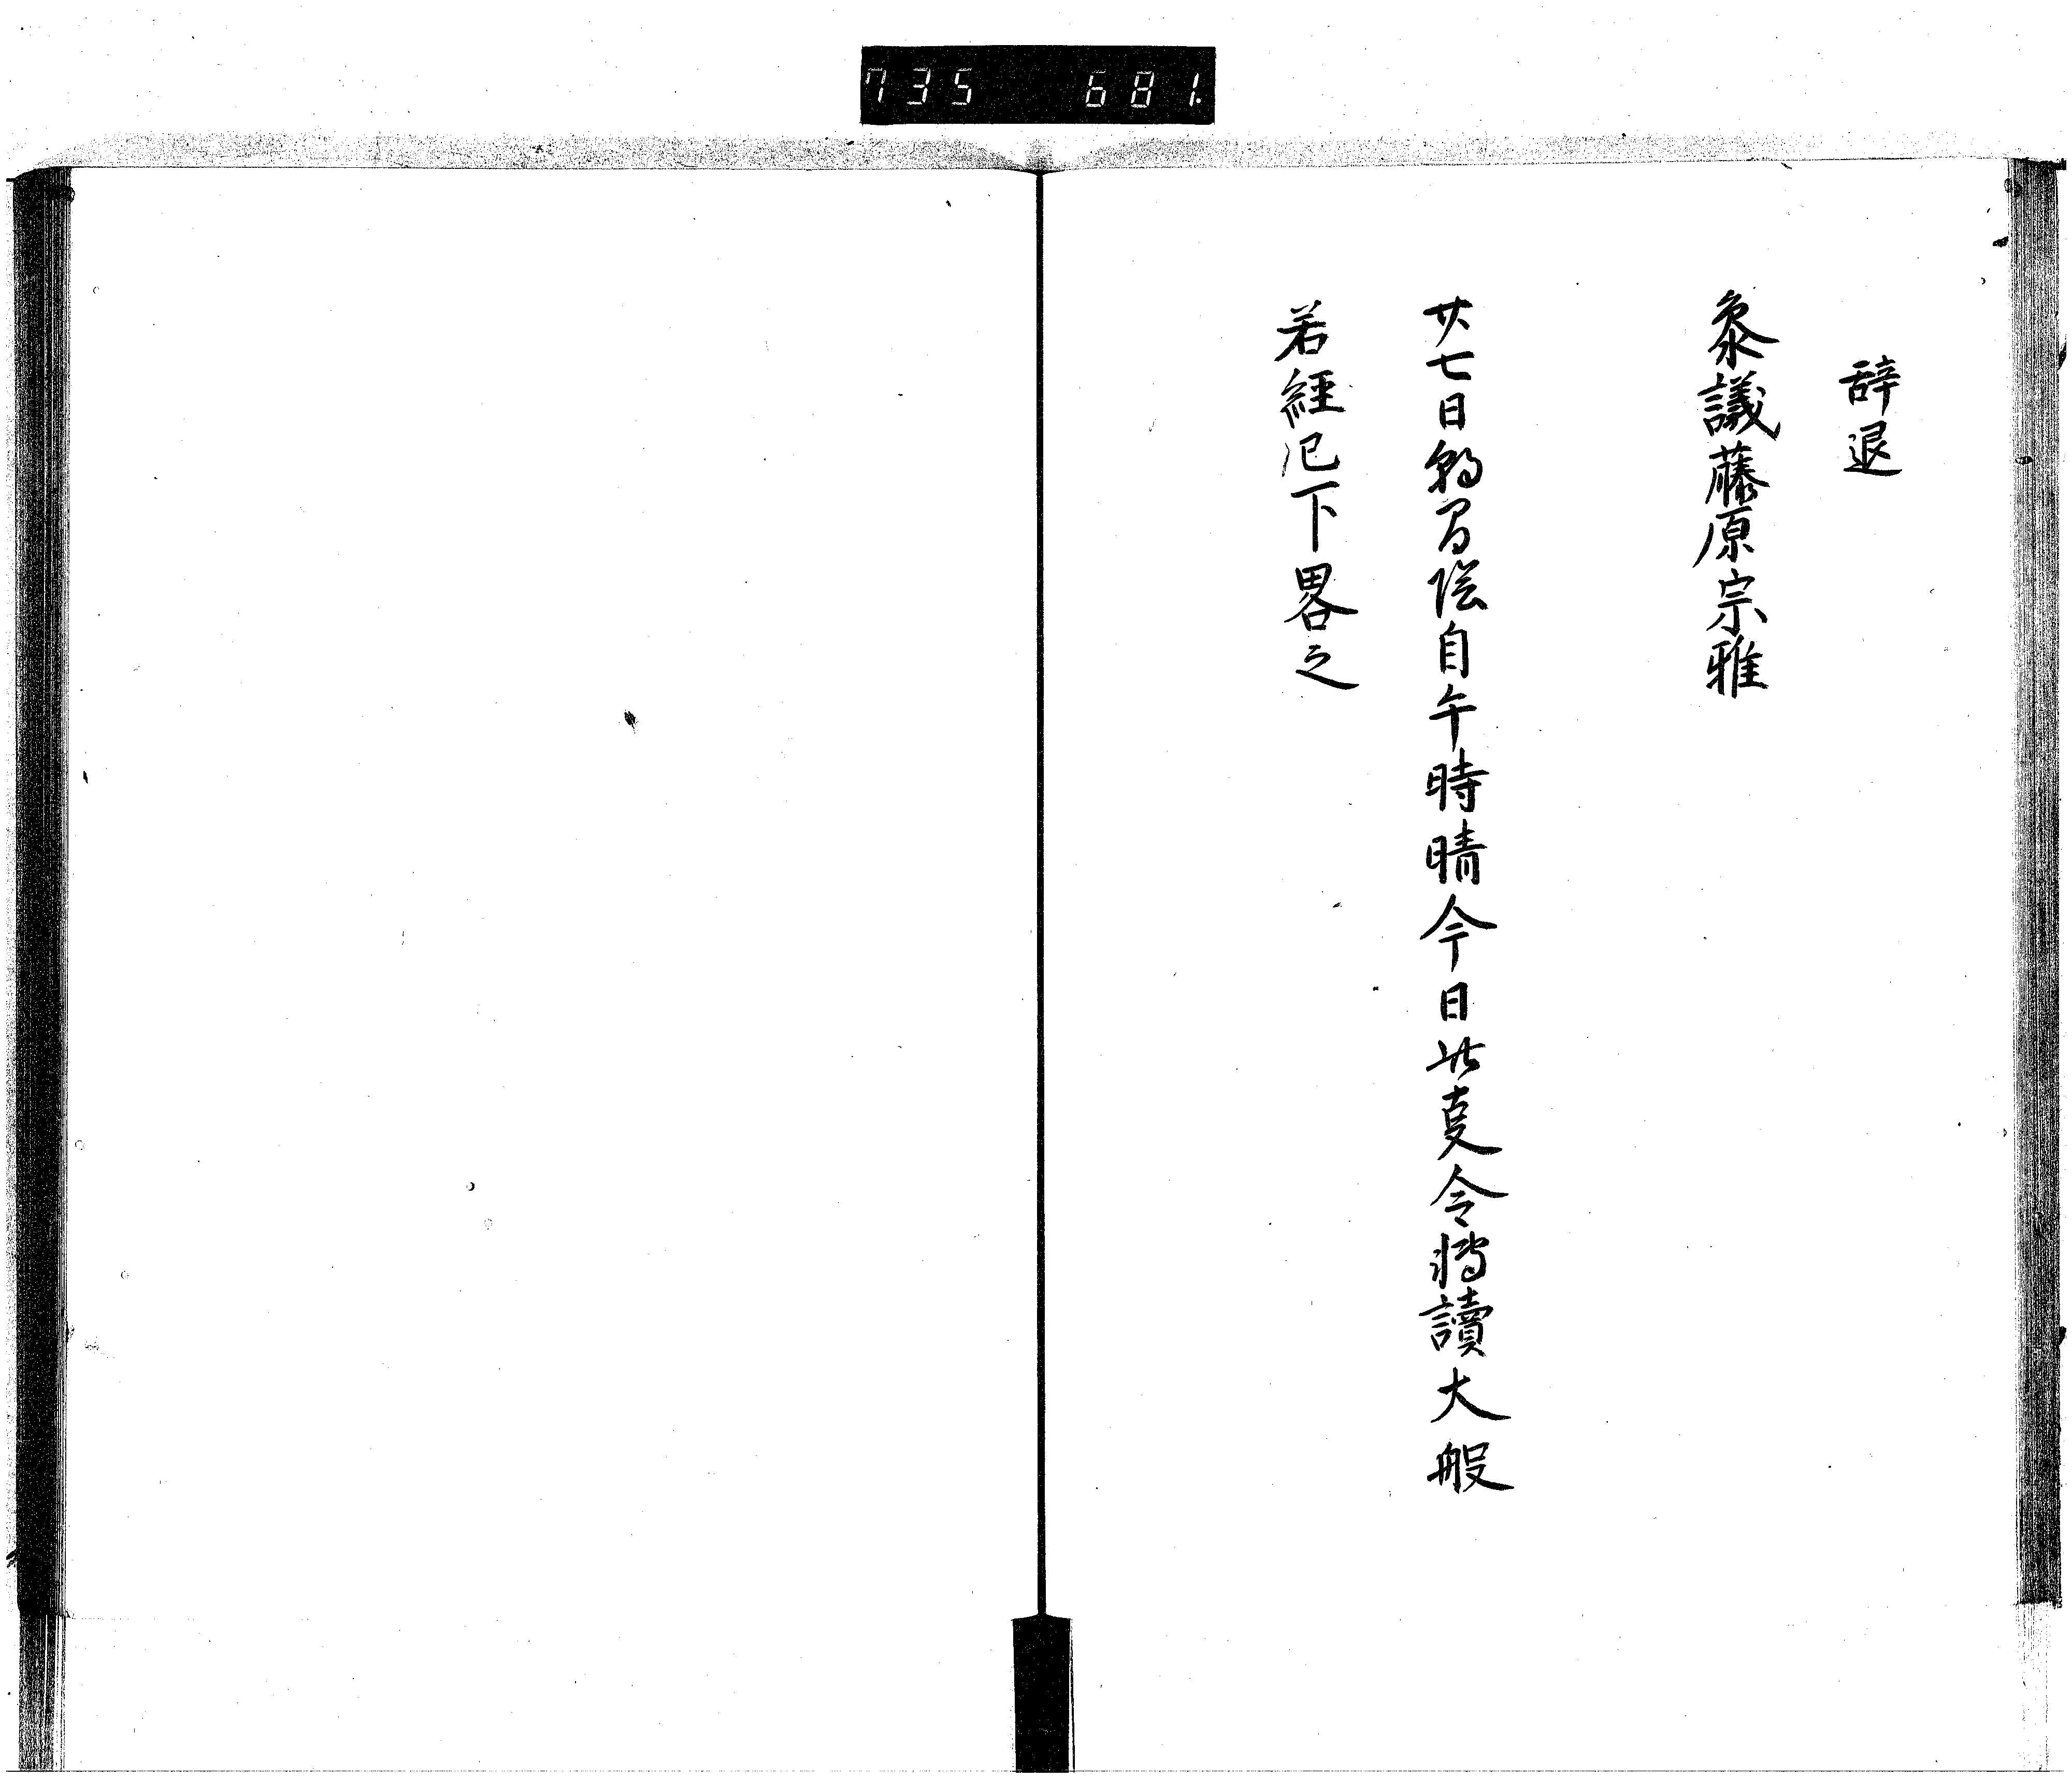 735 681.
辞退
叅議藤原宗雅
廿七日朝間陰自午時晴今日北斗令轉讀大般
若經已下畧之